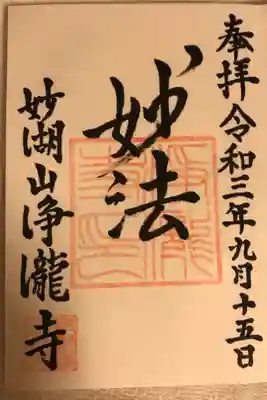 奉拝 令和三年九月十五日
妙法
妙湖山浄瀧寺